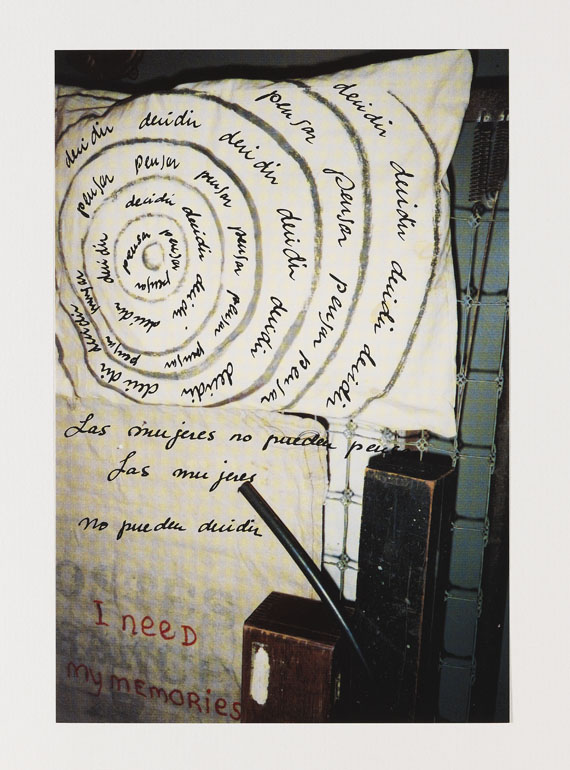 decidir decidir decidir decidir decidir
pensar pensar pensar pensar pensar
decidir decidir decidir decidir decidir decidir decidir decidir
pensar pensar pensar pensar pensar pensar pensar pensar
decidir decidir decidir decidir decidir
pensar pensar pensar
Las mujeres no pueden pensar
Las mujeres
no pueden decidir
I neeD
my meMORIES